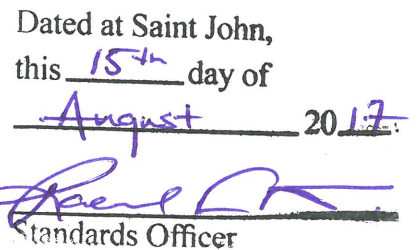 Dated at Saint John,
this 15th day of
August 2017.
Standards Officer